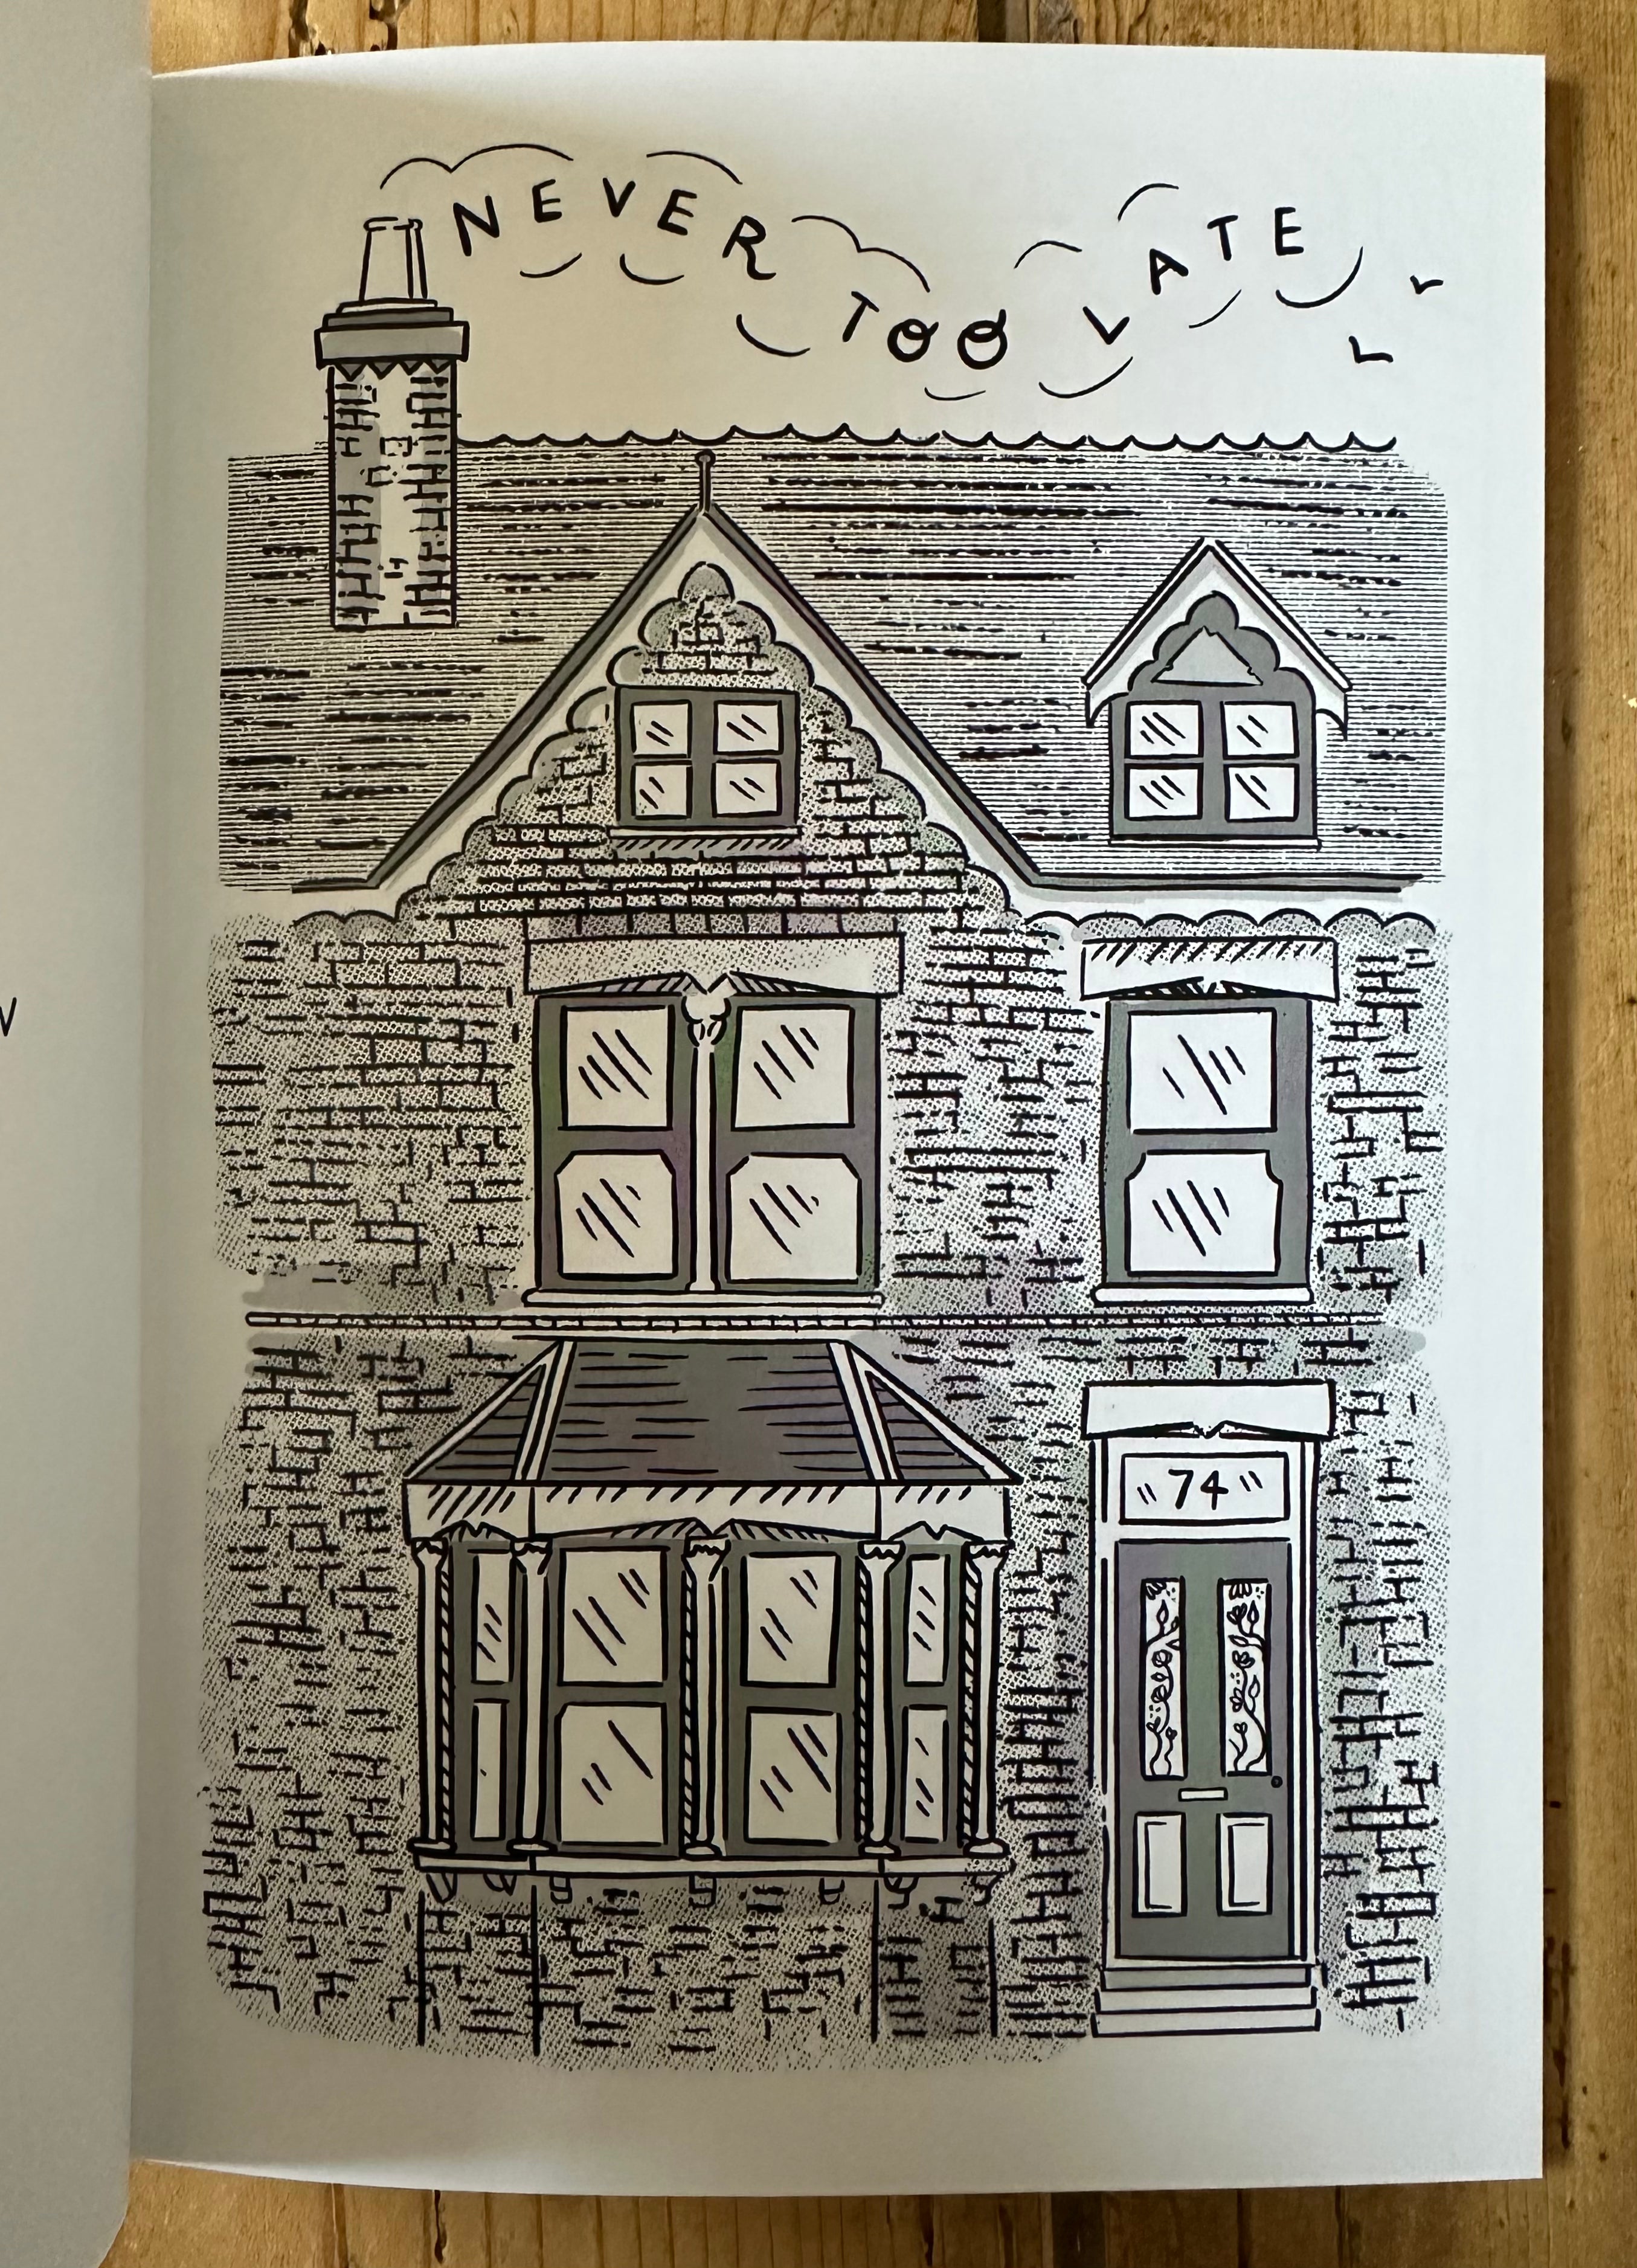 NEVER TOO LATE
74